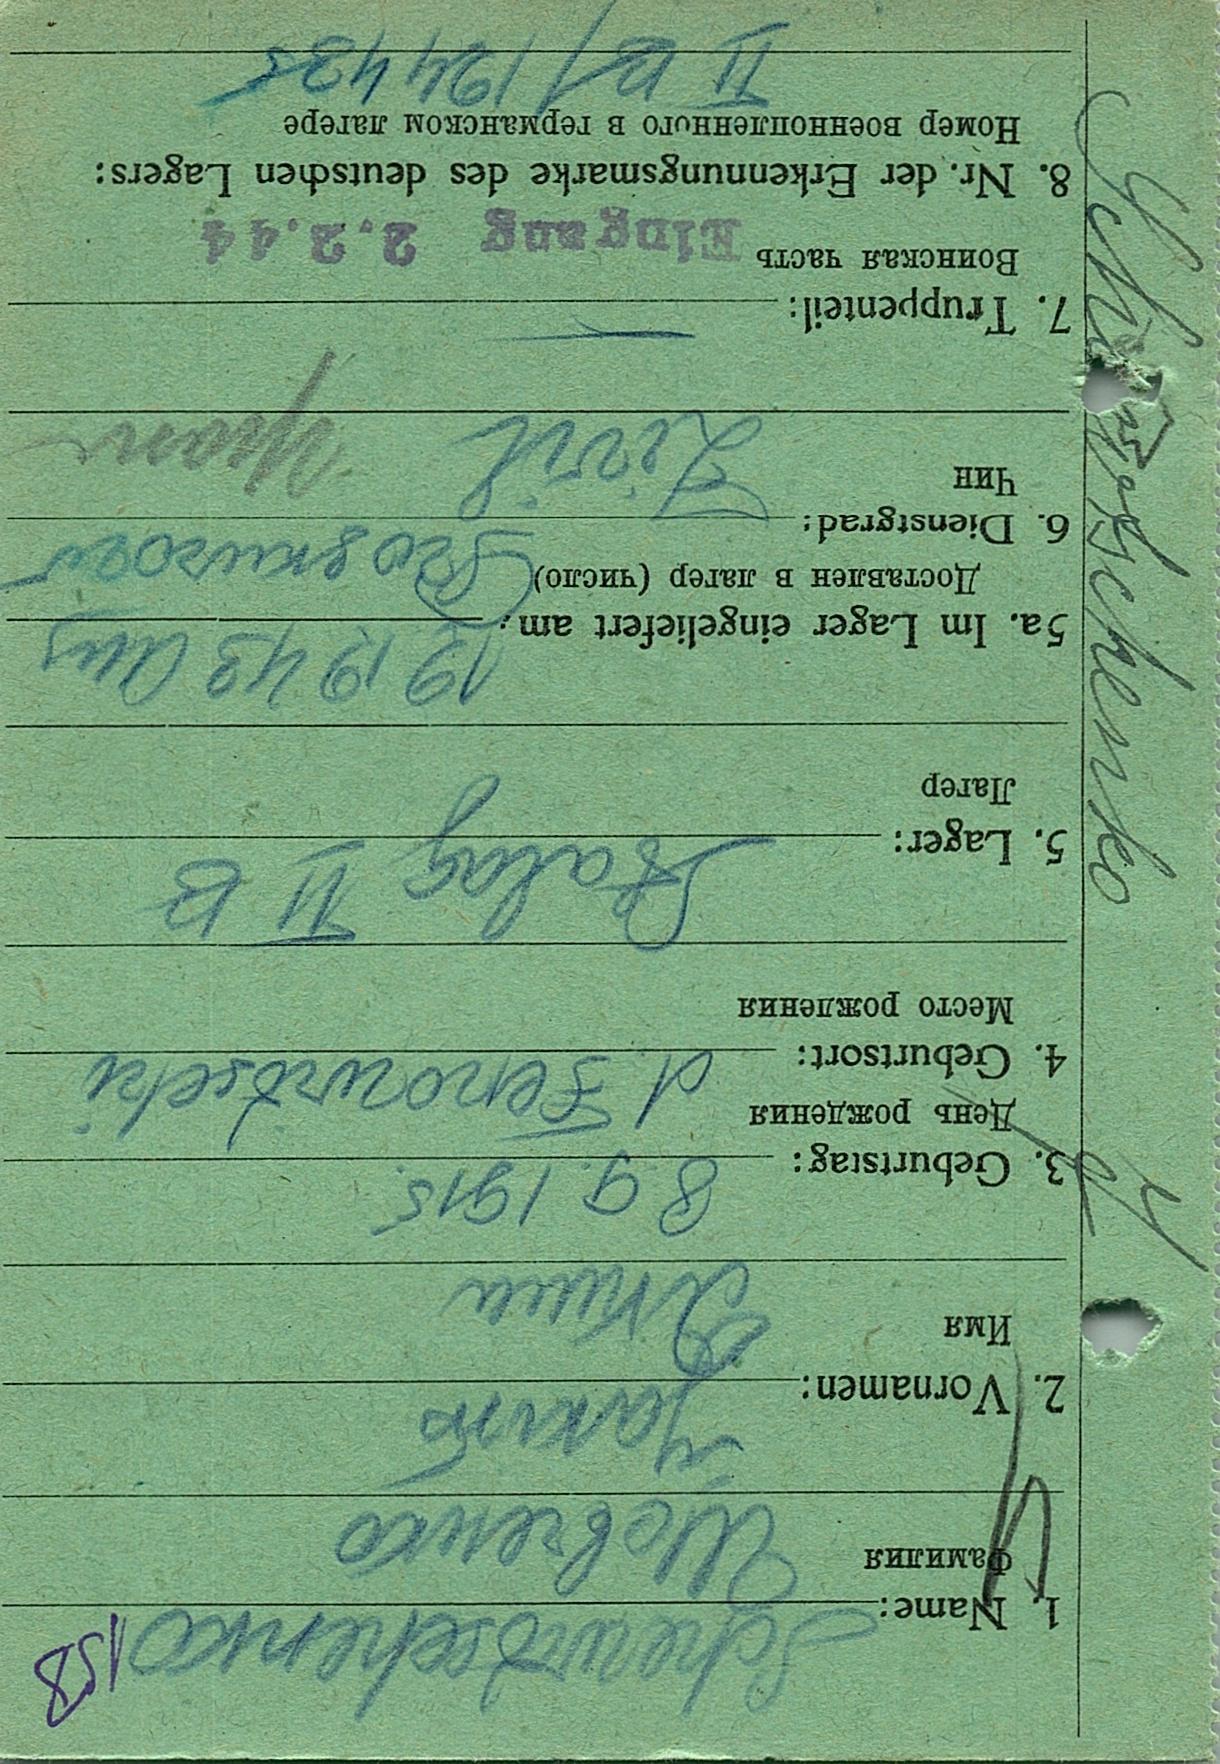 158
1. Name: Schewtschenko
Фамилия Шевченко
2. Vornamen: Jakim
Имя Яким
3. Geburtstag: 8.9.1915.
День рождения
4. Geburtsort: d.
Место рождения
5. Lager: Stalag II B
Лагерь
5a. Im Lager eingeliefert am: 19.1943 aus
Доставлен в лагерь (число)
6. Dienstgrad: Zivil
Чин
7. Truppenteil: —
Воинская часть Eingang 2.2.44
8. Nr. der Erkennungsmarke des deutschen Lagers:
Номер военнопленного в германском лагере
II B/ 124435